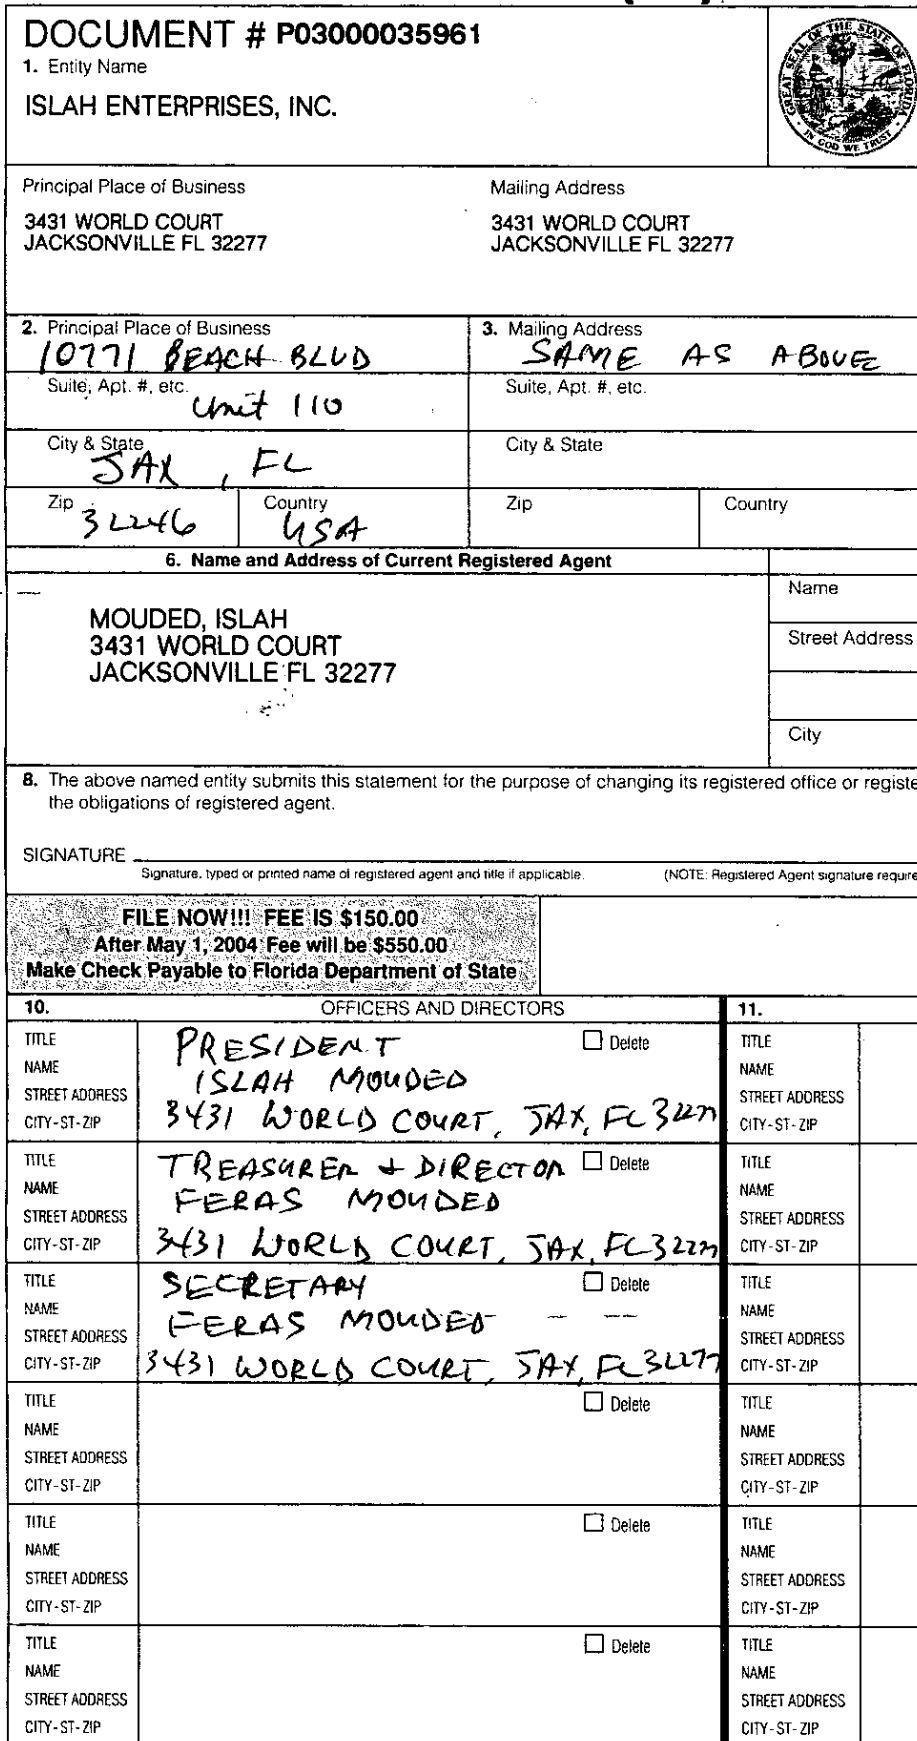 DOCUMENT # P03000035961
1. Entity Name
ISLAH ENTERPRISES, INC.
GREAT SEAL OF THE STATE OF FLORIDA
IN GOD WE TRUST
Principal Place of Business
3431 WORLD COURT
JACKSONVILLE FL 32277
Mailing Address
3431 WORLD COURT
JACKSONVILLE FL 32277
2. Principal Place of Business
10771 BEACH BLVD
Suite, Apt. #, etc.
Unit 110
City & State
JAX, FL
Zip
32246
Country
USA
3. Mailing Address
SAME AS ABOVE
Suite, Apt. #, etc.
City & State
Zip
Country
6. Name and Address of Current Registered Agent
MOUDED, ISLAH
3431 WORLD COURT
JACKSONVILLE FL 32277
Name
Street Address
City
8. The above named entity submits this statement for the purpose of changing its registered office or registe
the obligations of registered agent.
SIGNATURE
Signature, typed or printed name of registered agent and title if applicable. (NOTE: Registered Agent signature require
FILE NOW!!! FEE IS $150.00
After May 1, 2004 Fee will be $550.00
Make Check Payable to Florida Department of State
10. OFFICERS AND DIRECTORS
11.
TITLE PRESIDENT Delete
NAME ISLAH MOUDED
STREET ADDRESS 3431 WORLD COURT, JAX, FL 32277
CITY-ST-ZIP
TITLE
NAME
STREET ADDRESS
CITY-ST-ZIP
TITLE TREASURER + DIRECTOR Delete
NAME FERAS MOUDED
STREET ADDRESS
CITY-ST-ZIP 3431 WORLD COURT, JAX, FL 32277
TITLE
NAME
STREET ADDRESS
CITY-ST-ZIP
TITLE SECRETARY Delete
NAME FERAS MOUDED
STREET ADDRESS
CITY-ST-ZIP 3431 WORLD COURT, JAX, FL 32277
TITLE
NAME
STREET ADDRESS
CITY-ST-ZIP
TITLE Delete
NAME
STREET ADDRESS
CITY-ST-ZIP
TITLE
NAME
STREET ADDRESS
CITY-ST-ZIP
TITLE Delete
NAME
STREET ADDRESS
CITY-ST-ZIP
TITLE
NAME
STREET ADDRESS
CITY-ST-ZIP
TITLE Delete
NAME
STREET ADDRESS
CITY-ST-ZIP
TITLE
NAME
STREET ADDRESS
CITY-ST-ZIP